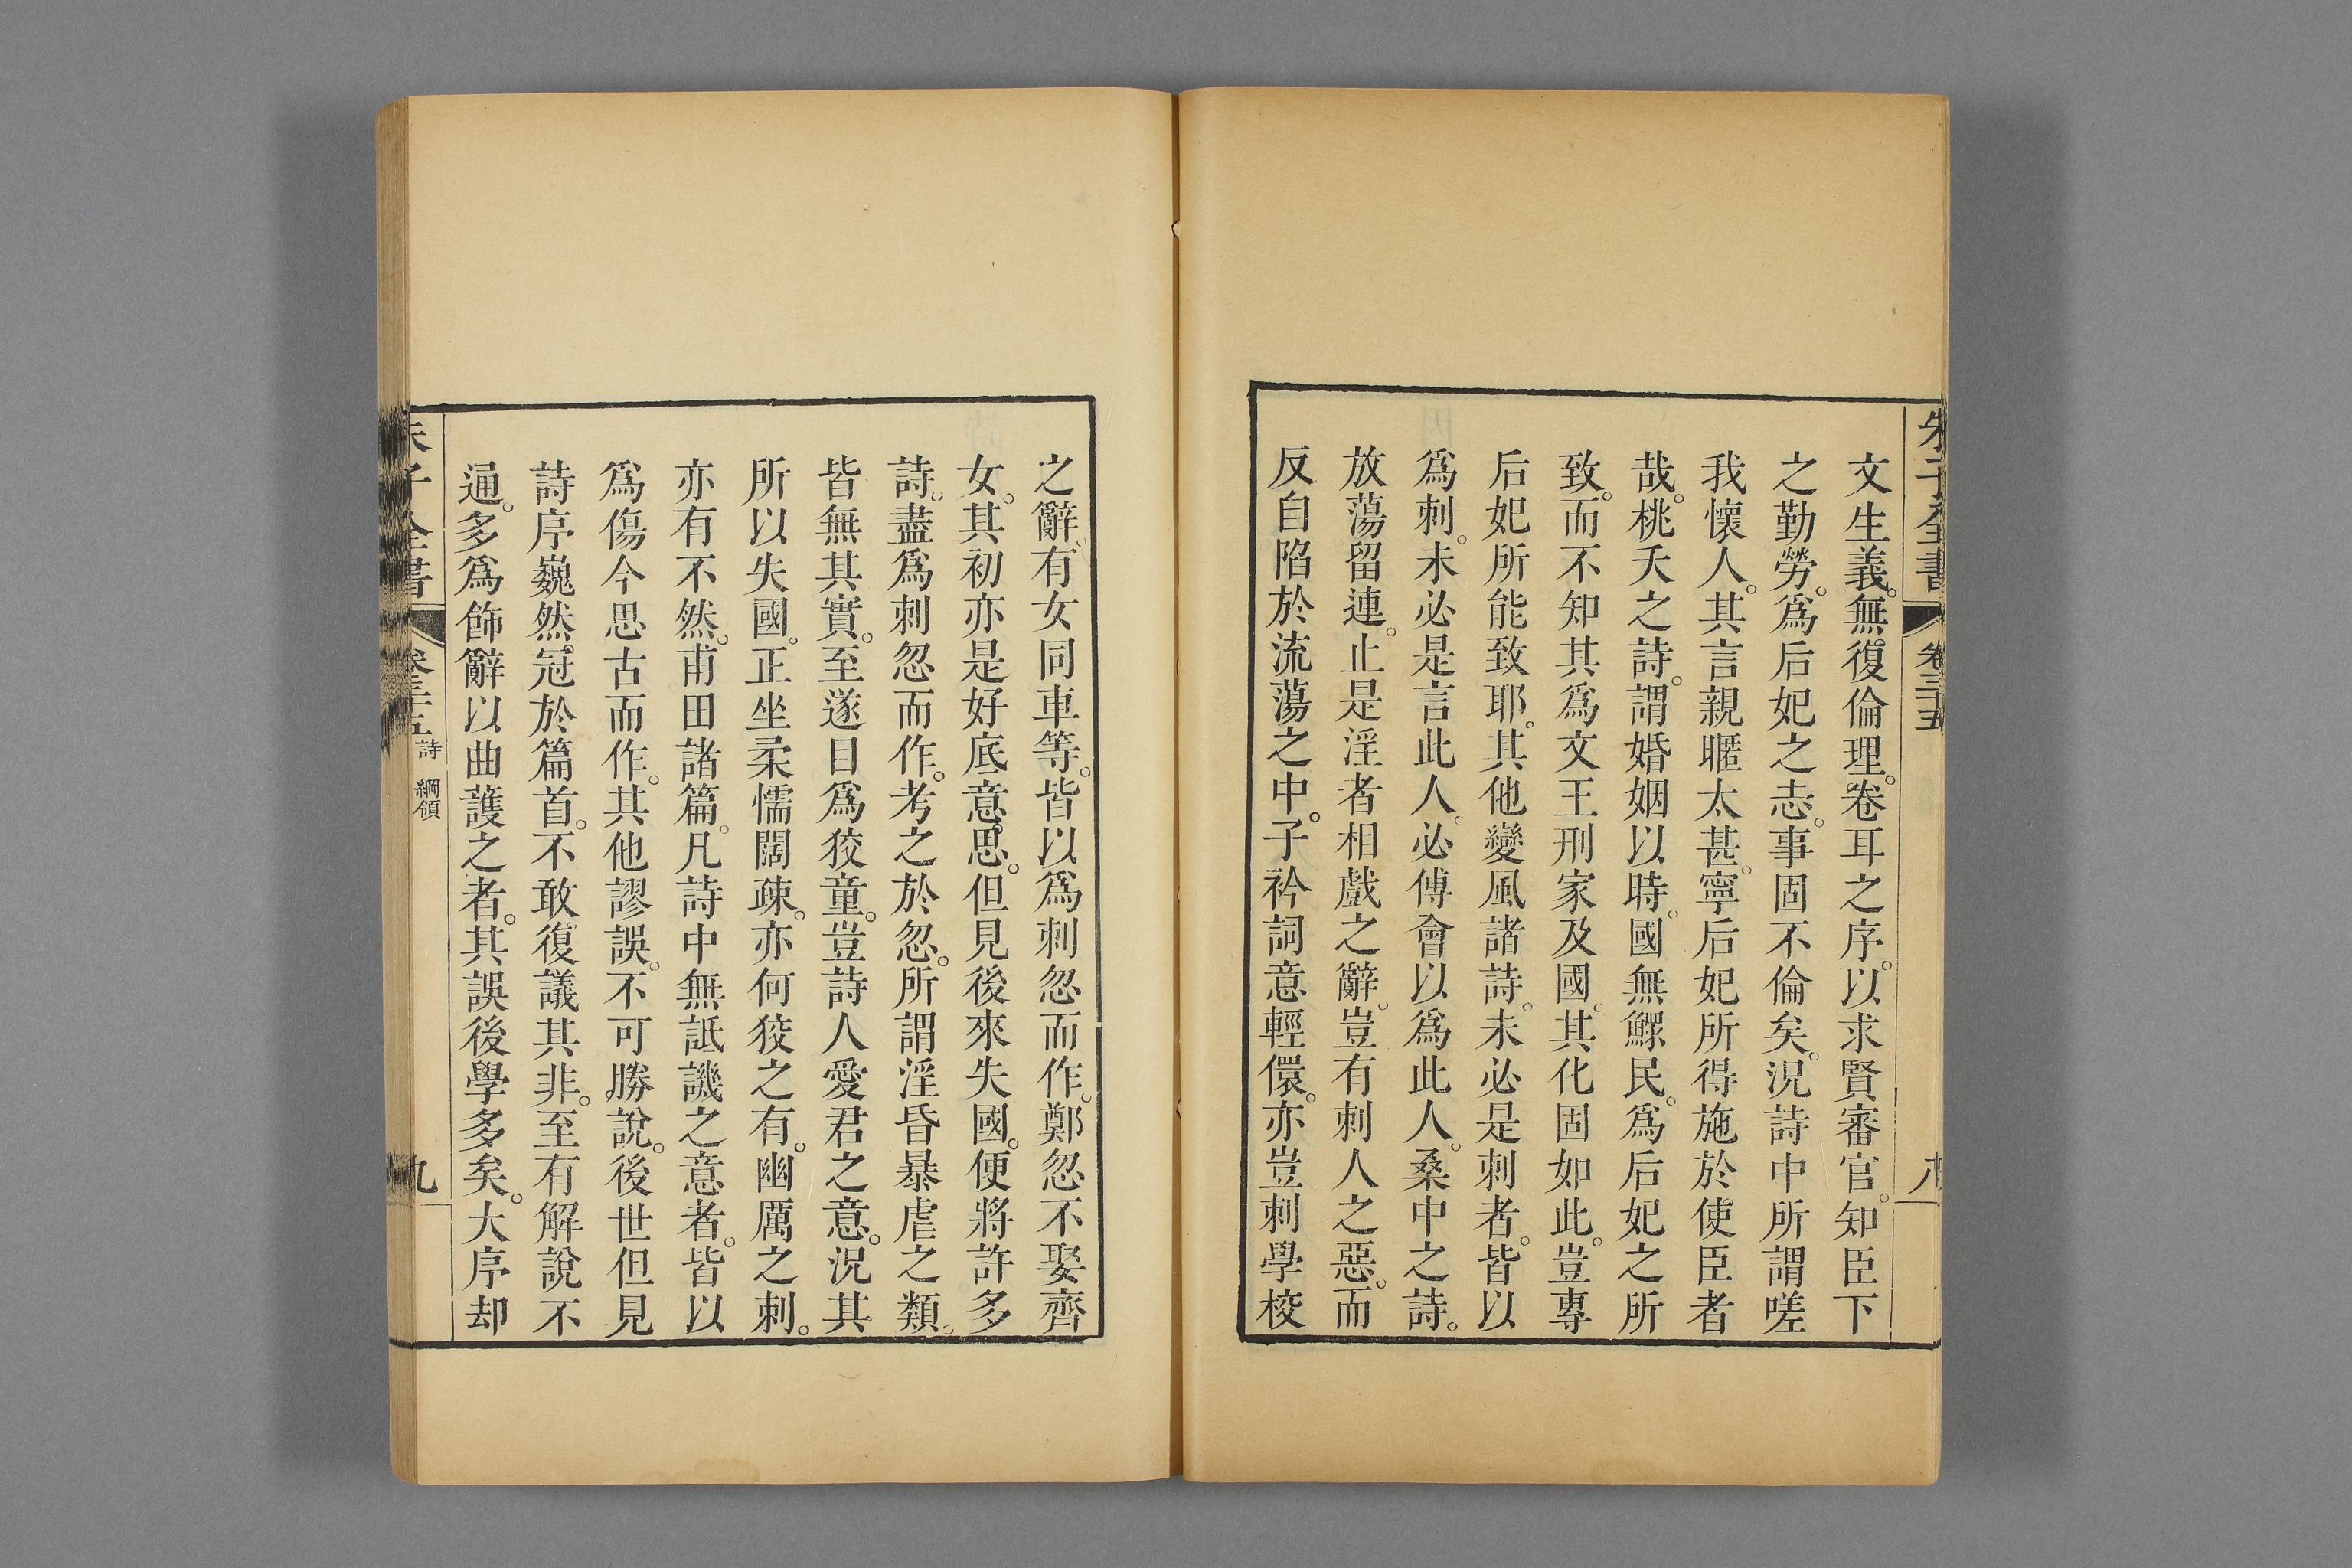 朱子全書 卷三十五 八
文生義。無復倫理。卷耳之序。以求賢審官。知臣下
之勤勞。爲后妃之志。事固不倫矣。況詩中所謂嗟
我懷人。其言親暱太甚。寧后妃所得施於使臣者
哉。桃夭之詩。謂婚姻以時。國無鰥民。爲后妃之所
致。而不知其爲文王刑家及國。其化固如此。豈專
后妃所能致耶。其他變風諸詩。未必是刺者。皆以
爲刺。未必是言此人。必傅會以爲此人。桑中之詩。
放蕩留連。止是淫者相戲之辭。豈有刺人之惡。而
反自陷於流蕩之中。子衿詞意輕儇。亦豈刺學校
之辭。有女同車等。皆以爲刺忽而作。鄭忽不娶齊
女。其初亦是好底意思。但見後來失國。便將許多
詩。盡爲刺忽而作。考之於忽。所謂淫昏暴虐之類。
皆無其實。至遂目爲狡童。豈詩人愛君之意。況其
所以失國。正坐柔懦闊疎。亦何狡之有。幽厲之刺。
亦有不然。甫田諸篇。凡詩中無詆譏之意者。皆以
爲傷今思古而作。其他謬誤。不可勝說。後世但見
詩序巍然。冠於篇首。不敢復議其非。至有解說不
通。多爲飾辭以曲護之者。其誤後學多矣。大序却
朱子全書 卷三十五 詩 綱領 九